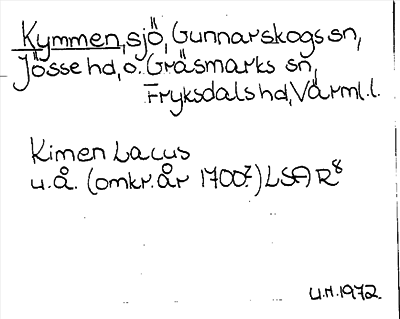 Kymmen, sjö, Gunnarskogs sn,
Jösse hd, o. Gräsmarks sn,
Fryksdals hd, Värml. l.
Kimen Lacus
u.å. (omkr. år 1700?) LSA R8
U.H. 1972.